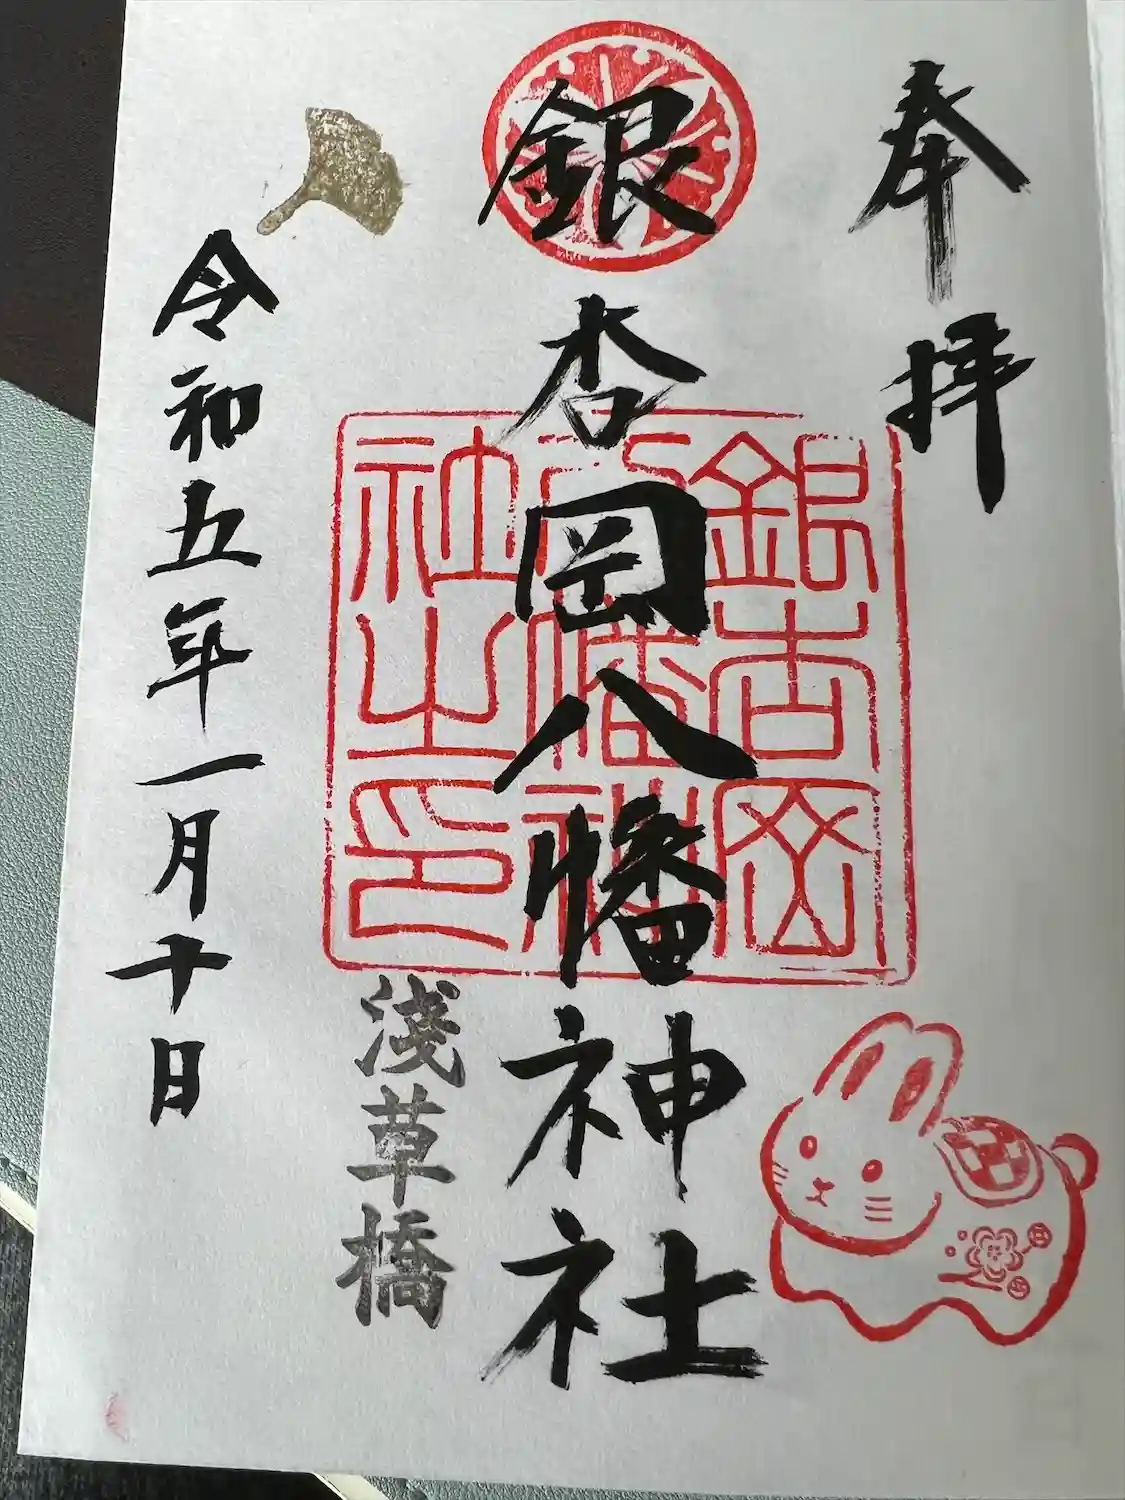 奉拝
銀杏岡八幡神社
銀杏岡八幡神社之印
淺草橋
令和五年一月十日